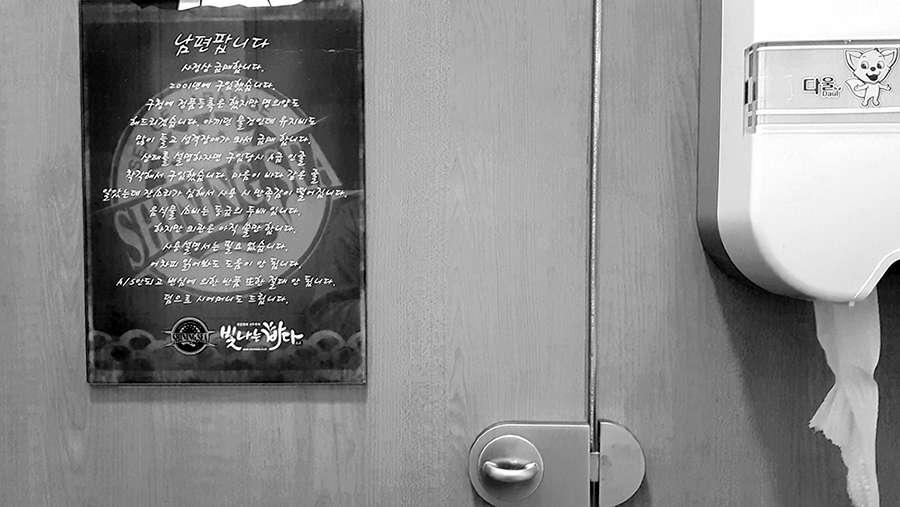 남편팝니다
사정상 급매합니다.
2001년에 구입했습니다.
구청에 정품등록은 했지만 명의양도
해드리겠습니다. 아끼던 물건인데 유지비도
많이 들고 성격장애가 와서 급매 합니다.
상태를 설명하자면 구입당시 A급 인줄
착각해서 구입했습니다. 마음이 바다 같은 줄
알았는데 잔소리가 심해서 사용 시 만족감이 떨어집니다.
음식물 소비는 동급의 두배 입니다.
하지만 외관은 아직 쓸만 합니다.
사용설명서는 필요 없습니다.
어차피 읽어봐도 도움이 안 됩니다.
A/S안되고 변심에 의한 반품 또한 절대 안 됩니다.
덤으로 시어머니도 드립니다.
SHINING SEA
빛나는 바다
다울
Daul